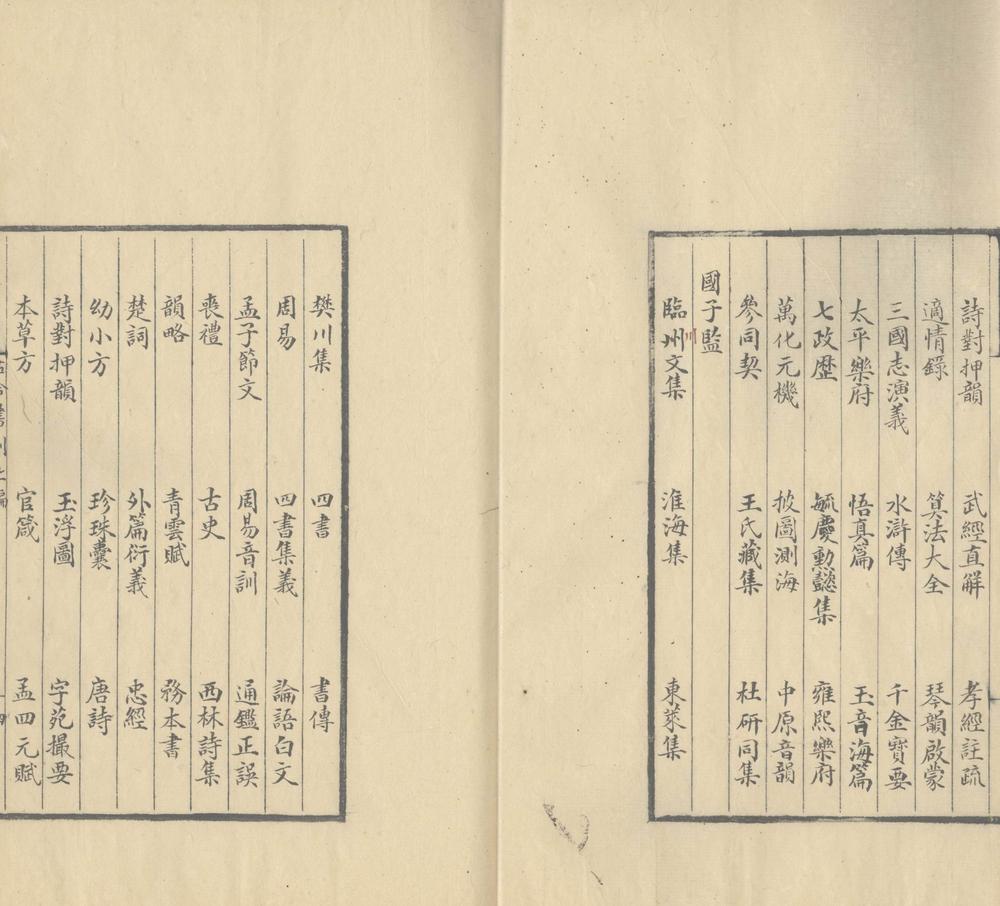 詩對押韻 武經直解 孝經註疏
適情錄 算法大全 琴韻啟蒙
三國志演義 水滸傳 千金寶要
太平樂府 悟真篇 玉音海篇
七政歷 毓慶勳懿集 雍熙樂府
萬化元機 披圖測海 中原音韻
參同契 王氏藏集 杜研同集
國子監
臨州文集 淮海集 東萊集
川
樊川集 四書 書傳
周易 四書集義 論語白文
孟子節文 周易音訓 通鑑正誤
喪禮 古史 西林詩集
韻略 青雲賦 務本書
楚詞 外篇衍義 忠經
幼小方 珍珠囊 唐詩
詩對押韻 玉浮圖 字苑撮要
本草方 官箴 孟四元賦